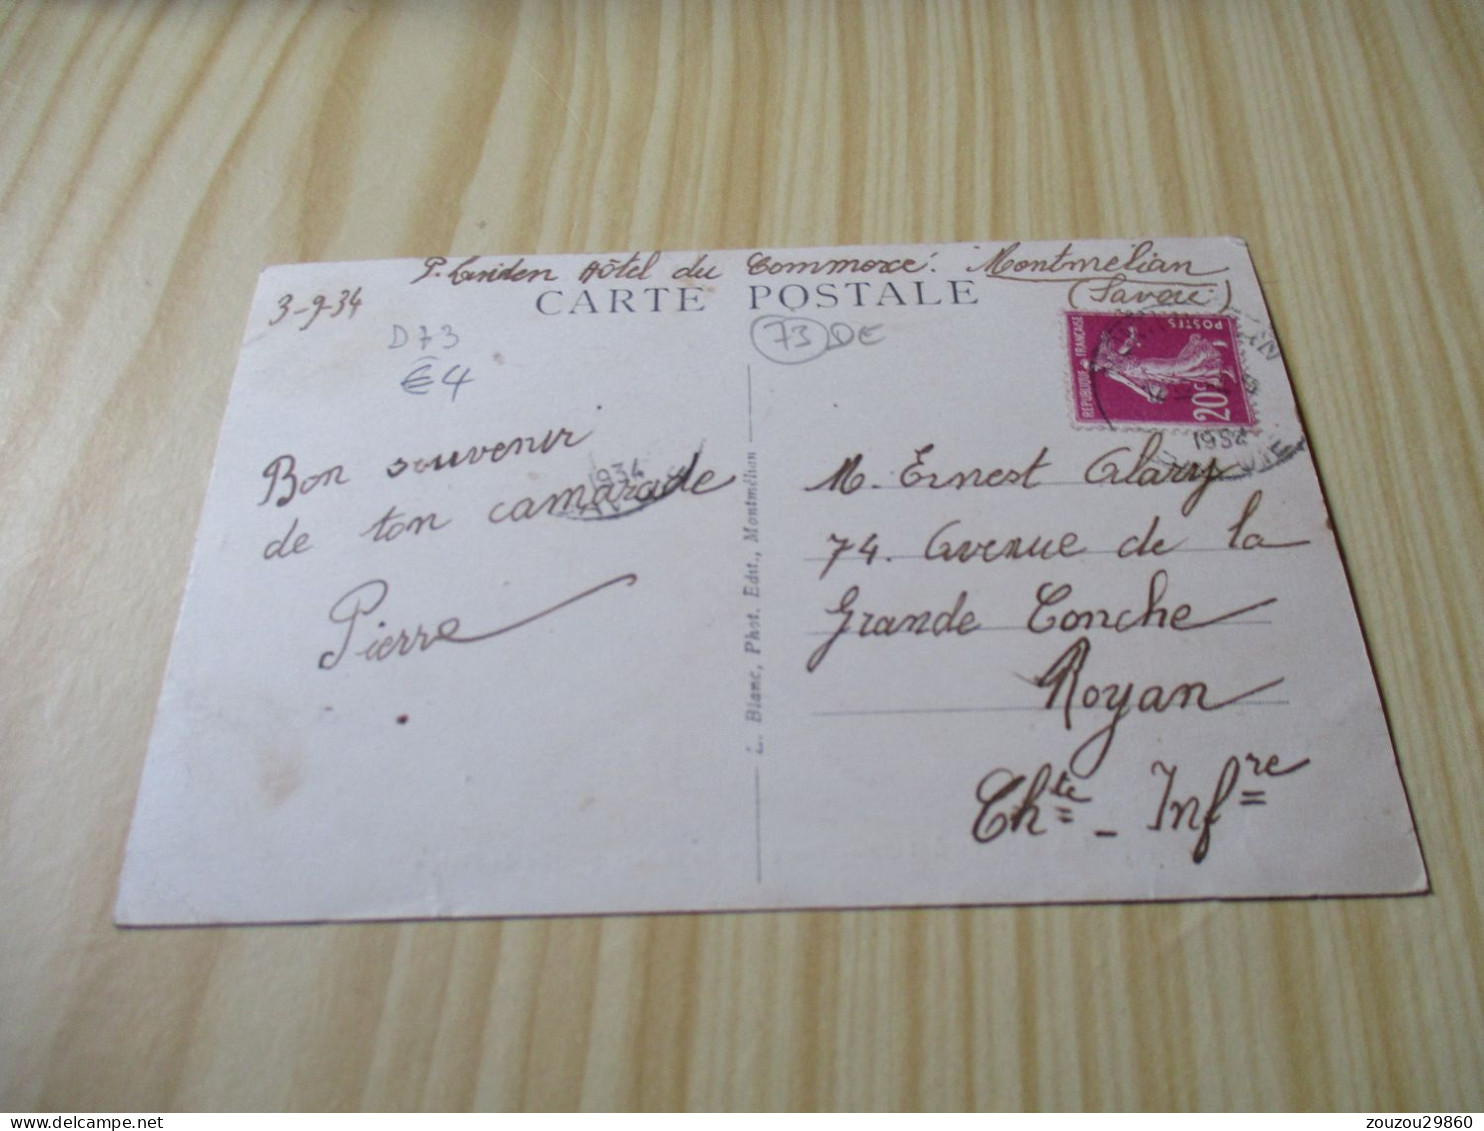 P. Hôtel du Commerce. Montmélian
(Savoie)
3-9-34
CARTE POSTALE
D73
€4
73 DE
REPUBLIQUE FRANÇAISE
POSTES
20c
1934
Bon souvenir
de ton camarade
Pierre
1934
L. Blanc, Phot. Edit., Montmélian
M. Ernest Alary
74. Avenue de la
Grande Conche
Royan
Chte - Infre
zouzou29860